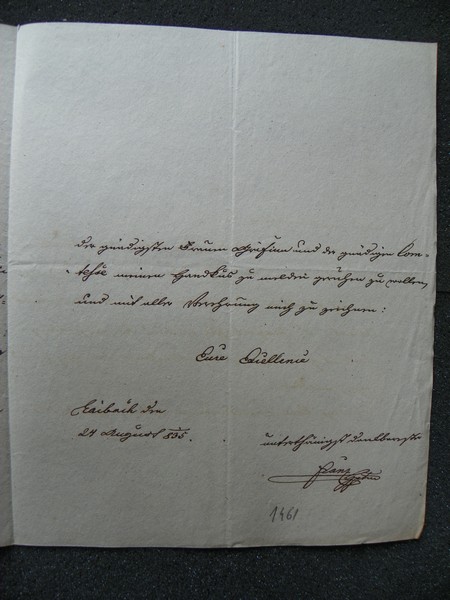 der gnädigsten Frauen Gräfinn und der gnädigen Com-
tesse meinen Handkuß zu melden geruhen zu wollen,
und mit aller Verehrung mich zu zeichnen:
Eure Excellence
Laibach den
24 August 835.
unterthänigst dankbarster
Franz
1461